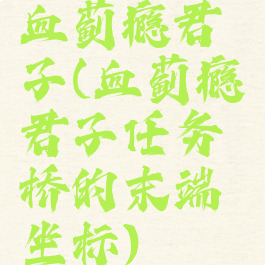 血蓟瘾君
子(血蓟瘾
君子任务
桥的末端
坐标)